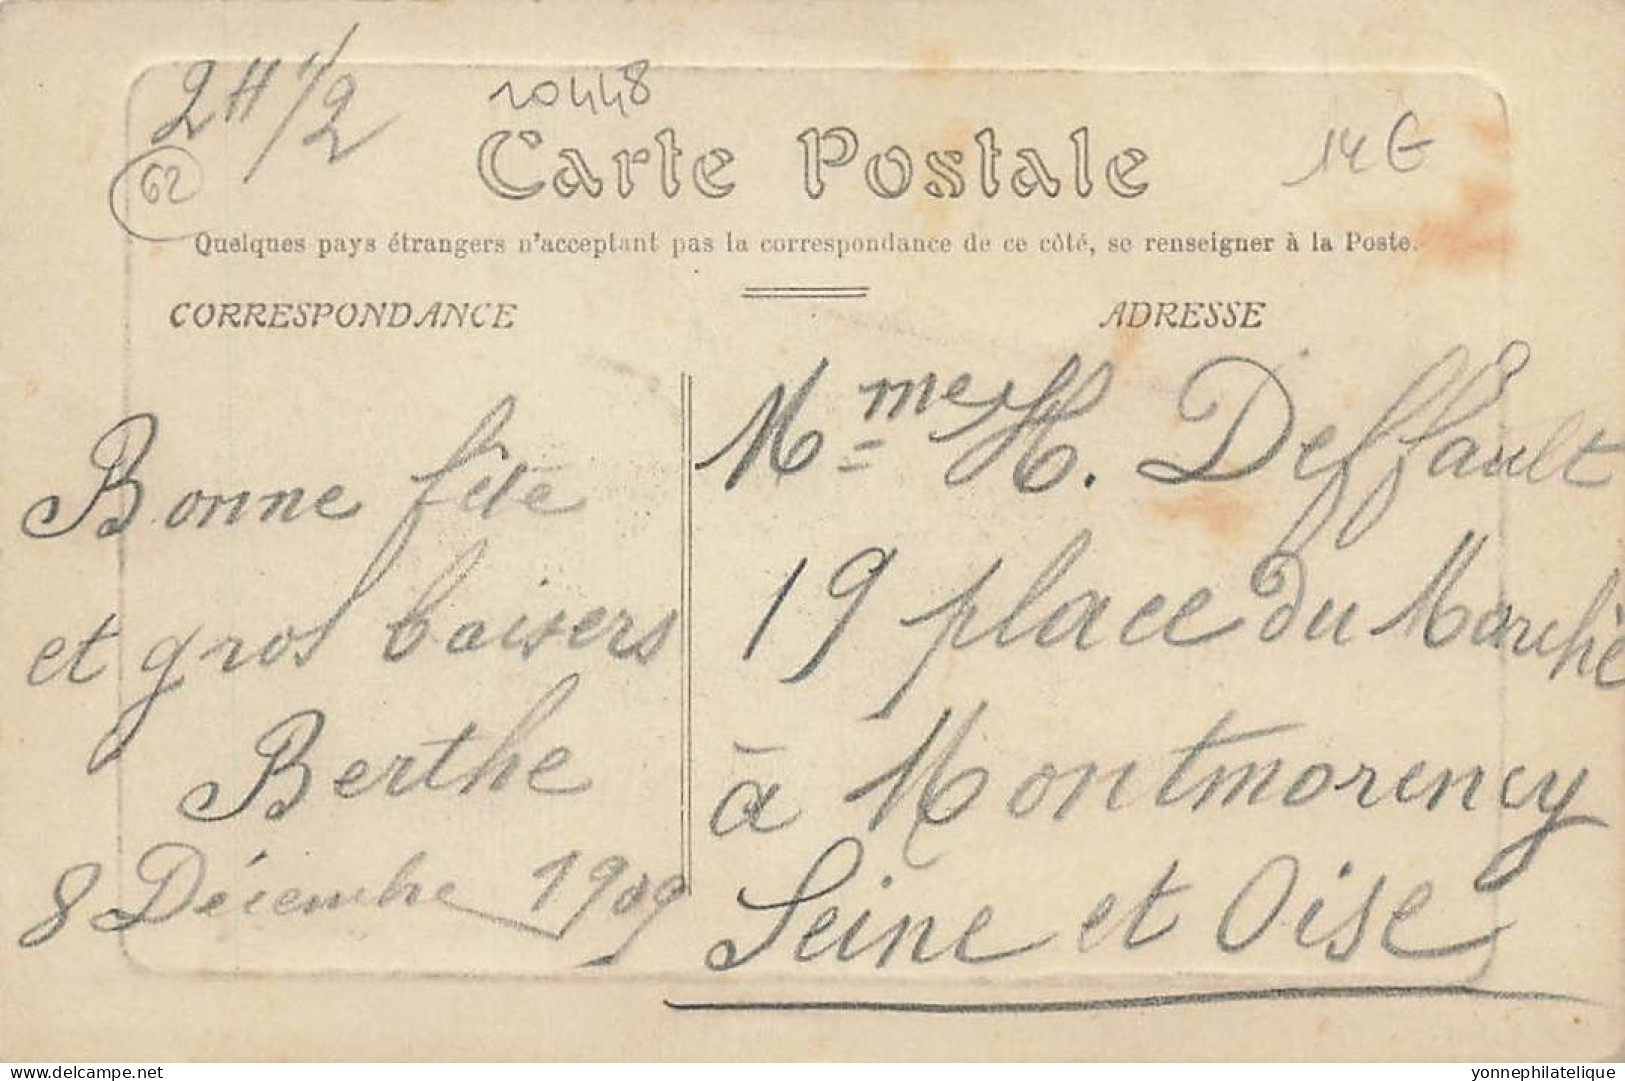 2H 1/2
10448
14€
62
Carte Postale
Quelques pays étrangers n'acceptent pas la correspondance de ce côté, se renseigner à la Poste.
CORRESPONDANCE
ADRESSE
Bonne fête
et gros baisers
Berthe
8 Décembre 1909
Mme H. Deffault
19 place du Marché
à Montmorency
Seine et Oise
delcampe.net
yonnephilatelique